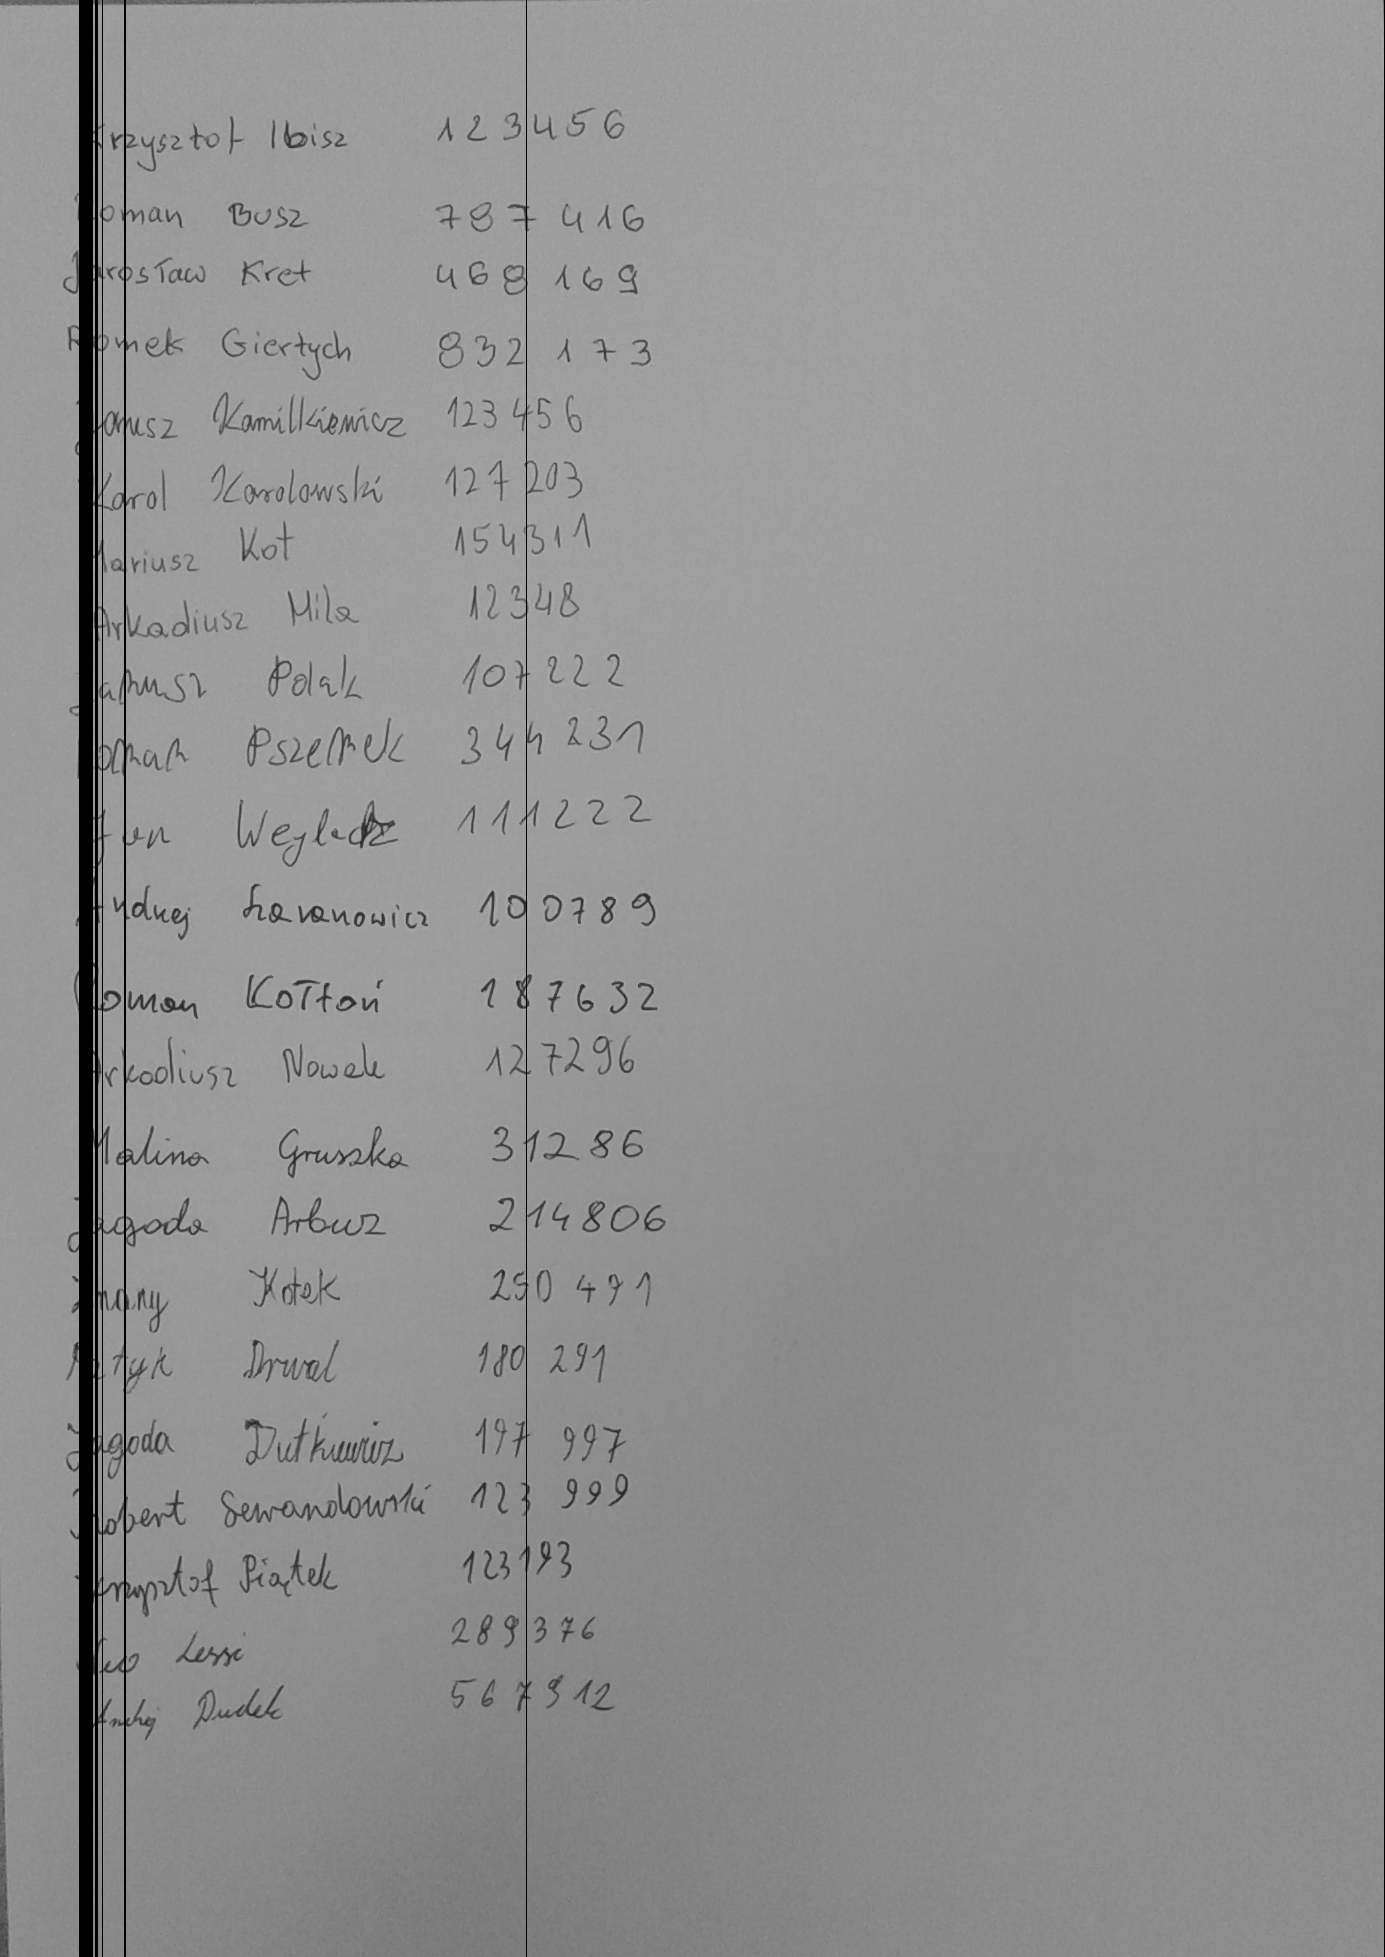 Krzysztof Ibisz 123456
Roman Busz 787 416
Jarosław Kret 468 169
Romek Giertych 832 173
Janusz Kamilkiewicz 123456
Karol Karolowski 127203
Mariusz Kot 154311
Arkadiusz Mila 12348
Janusz Polak 107222
Roman Pszemek 344 231
Jan 111222
Andrzej 100789
Roman Kołtoń 187632
Arkadiusz Nowak 127296
Malina Gruszka 31286
Jagoda Arbuz 214806
Znany Kotek 250 471
Patyk Drwal 180 291
Jagoda Dutkiewicz 197 997
Robert Sewandowski 123 999
Krzysztof Piątek 123193
Lessi 289376
Andrzej Dudek 567912